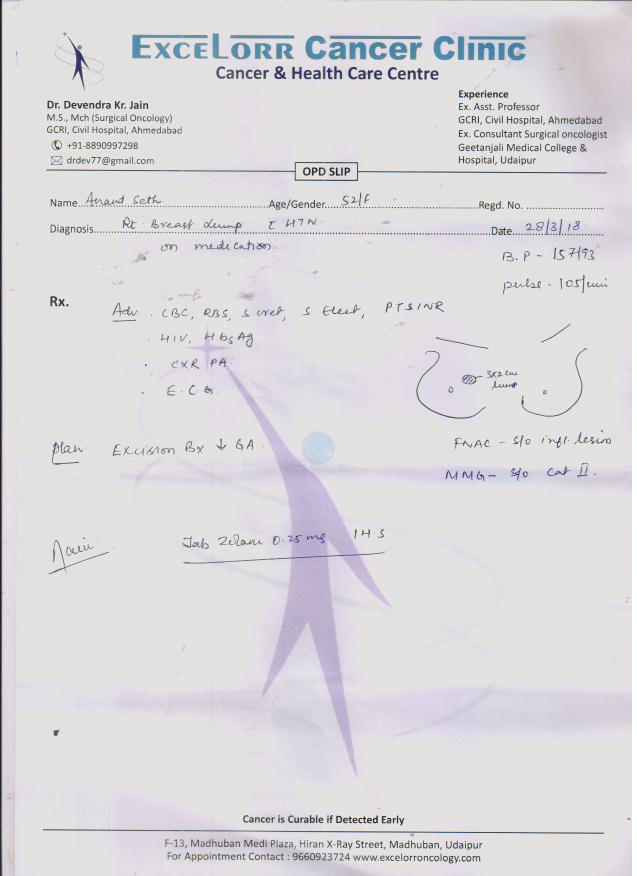 EXCELORR Cancer Clinic
Cancer & Health Care Centre
Dr. Devendra Kr. Jain
M.S., Mch (Surgical Oncology)
GCRI, Civil Hospital, Ahmedabad
+91-8890997298
drdev77@gmail.com
Experience
Ex. Asst. Professor
GCRI, Civil Hospital, Ahmedabad
Ex. Consultant Surgical oncologist
Geetanjali Medical College &
Hospital, Udaipur
OPD SLIP
Name Anand Seth Age/Gender 52/F Regd. No.
Diagnosis Rt Breast lump c HTN Date 28/3/18
on medication.
B.P - 157/93
pulse - 105/min
Rx.
Adv. CBC, RBS, S creat, S Elect, PTSINR
HIV, HbsAg
CXR PA
E.C.G.
3x2 cm
lump
Plan Excision Bx ↓ GA.
FNAC - S/o infl. lesion
MMG - S/o Cat II.
Tab Zolam 0.25 mg 1H.S
Cancer is Curable if Detected Early
F-13, Madhuban Medi Plaza, Hiran X-Ray Street, Madhuban, Udaipur
For Appointment Contact : 9660923724 www.excelorroncology.com